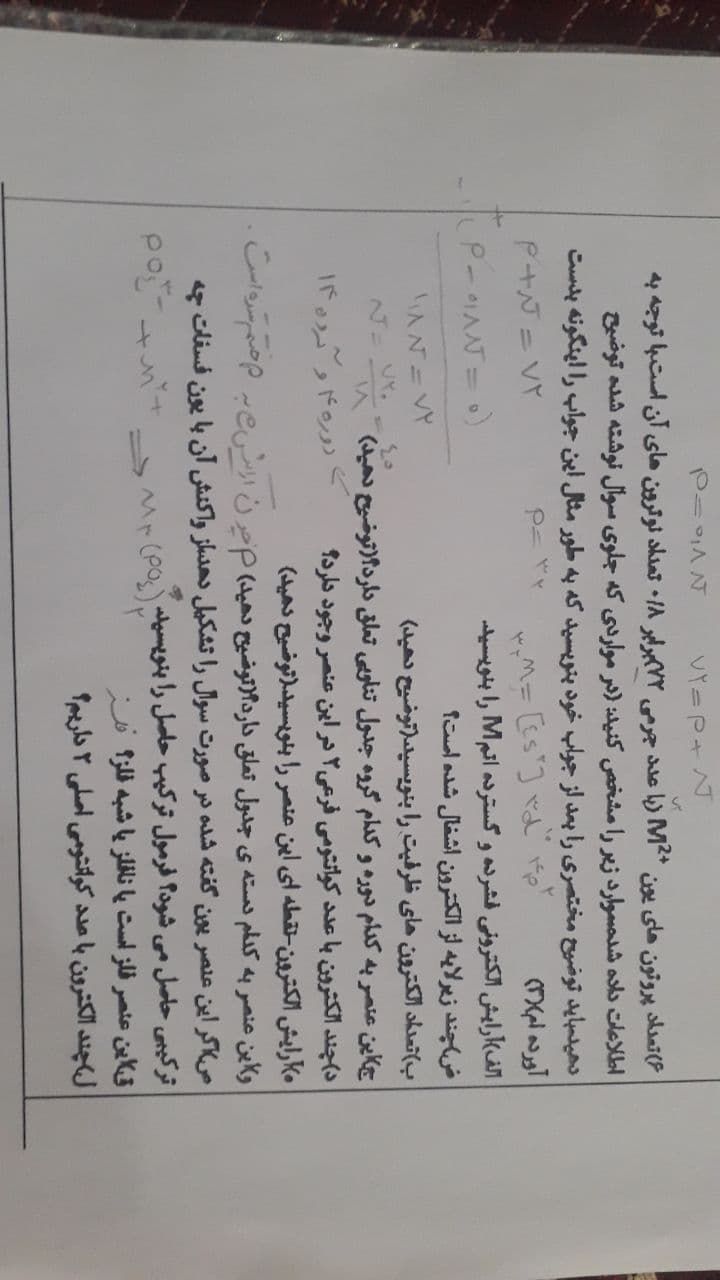 P = ۰/۸ N      ۷۲ = P + N
۶)تعداد پروتون های یون M²⁺ (با عدد جرمی ۷۲)برابر ۰/۸ تعداد نوترون های آن است.با توجه به
اطلاعات داده شده،موارد زیر را مشخص کنید: (در مواردی که جلوی سوال نوشته شده توضیح
دهید،باید توضیح مختصری را بعد از جواب خود بنویسید که به طور مثال این جواب را اینگونه بدست
آورده ام)(۳)
P + N = ۷۲      P = ۳۲      ₃₂M = [      ۴s² ] ۳d¹⁰ ۴p²
الف)آرایش الکترونی فشرده و گسترده اتم M را بنویسید
+ -۱ ( P - ۰/۸ N = ۰ )
ض)چند زیرلایه از الکترون اشغال شده است؟
۱/۸ N = ۷۲
ب)تعداد الکترون های ظرفیت را بنویسید(توضیح دهید)
N = ۷۲۰ / ۱۸ = ۴۰
ج)این عنصر به کدام دوره و کدام گروه جدول تناوبی تعلق دارد؟(توضیح دهید)
دوره ۴ و گروه ۱۴
د)چند الکترون با عدد کوانتومی فرعی ۲ در این عنصر وجود دارد؟
ه)آرایش الکترون-نقطه ای این عنصر را بنویسید(توضیح دهید)
و)این عنصر به کدام دسته ی جدول تعلق دارد؟(توضیح دهید) p چون آرایش به p ختم شده است.
ص)اگر این عنصر یون گفته شده در صورت سوال را تشکیل دهد،از واکنش آن با یون فسفات چه
ترکیبی حاصل می شود؟ فرمول ترکیب حاصل را بنویسید
PO₄³⁻ + M²⁺ ⇒ M₃(PO₄)₂
ق)این عنصر فلز است یا نافلز یا شبه فلز؟ فلز
ل)چند الکترون با عدد کوانتومی اصلی ۳ داریم؟